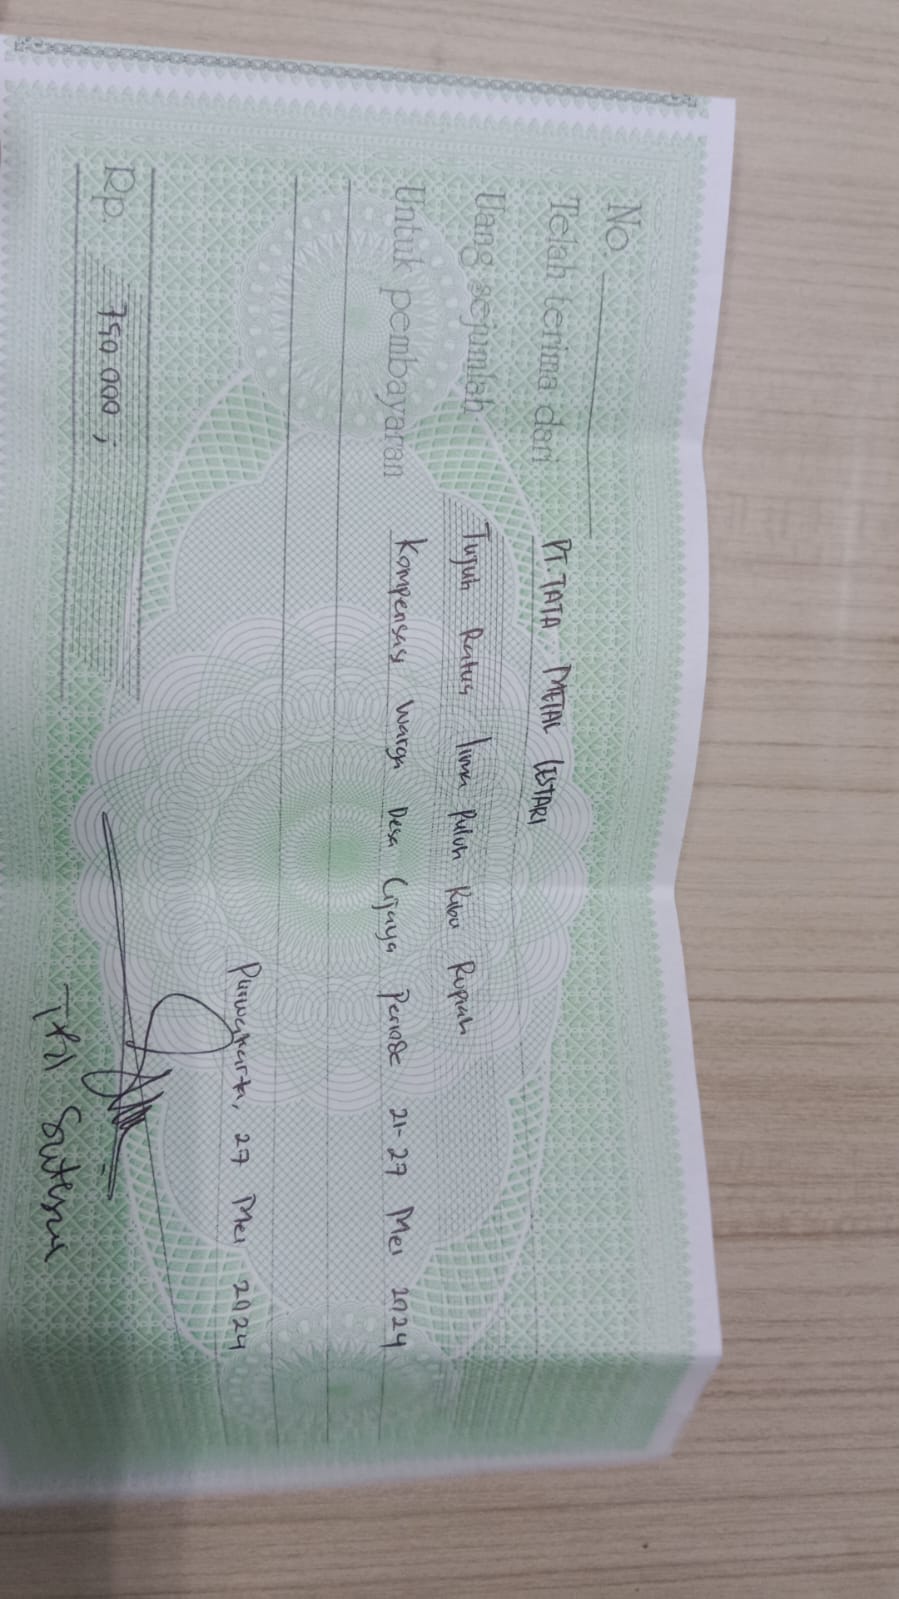 No.
Telah terima dari PT. TATA METAL LESTARI
Uang sejumlah Tujuh Ratus lima Puluh Ribu Rupiah
Untuk pembayaran Kompensasi Warga Desa Cijaya Periode 21-27 Mei 2024
Purwakarta, 27 Mei 2024
Rp. 750.000,